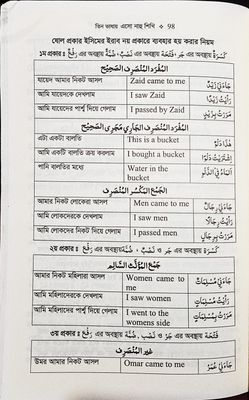 তিন ভাষায় এসো নাহু শিখি ❖ 98
ষোল প্রকার ইসিমের ইরাব নয় প্রকারে ব্যবহার হয় করার নিয়ম
১ম প্রকার : رَفْع এর অবস্থায় ضَمَّة , نَصْب এর অবস্থায় فَتْحَة ও جَر এর অবস্থায় كَسْرَة
اَلْمُفْرَدُ الْمُنْصَرِفُ الصَّحِيْحُ
যায়েদ আমার নিকট আসল Zaid came to me جَاءَنِيْ زَيْدٌ
আমি যায়েদকে দেখলাম I saw Zaid رَأَيْتُ زَيْدًا
আমি যায়েদের পার্শ্ব দিয়ে গেলাম I passed by Zaid مَرَرْتُ بِزَيْدٍ
اَلْمُفْرَدُ الْمُنْصَرِفُ الْجَارِيْ مَجْرَى الصَّحِيْحِ
এটা একটা বালতি This is a bucket هٰذَا دَلْوٌ
আমি একটি বালতি ক্রয় করলাম I bought a bucket اِشْتَرَيْتُ دَلْوًا
পানি বালতির মধ্যে Water in the bucket اَلْمَاءُ فِي الدَّلْوِ
اَلْجَمْعُ الْمُكَسَّرُ الْمُنْصَرِفُ
আমার নিকট লোকেরা আসল Men came to me جَاءَنِيْ رِجَالٌ
আমি লোকদেরকে দেখলাম I saw men رَأَيْتُ رِجَالًا
আমি লোকদের নিকট দিয়ে গেলাম I passed men مَرَرْتُ بِرِجَالٍ
২য় প্রকার : رَفْع এর অবস্থায় ضَمَّة , نَصْب ও جَر এর অবস্থায় كَسْرَة
جَمْعُ الْمُؤَنَّثِ السَّالِمِ
আমার নিকট মহিলারা আসল Women came to me جَاءَنِيْ مُسْلِمَاتٌ
আমি মহিলাদেরকে দেখলাম I saw women رَأَيْتُ مُسْلِمَاتٍ
আমি মহিলাদের পার্শ্ব দিয়ে গেলাম I went to the womens side مَرَرْتُ بِمُسْلِمَاتٍ
৩য় প্রকার : رَفْع এর অবস্থায় ضَمَّة , نَصْب ও جَر এর অবস্থায় فَتْحَة
غَيْرُ الْمُنْصَرِفِ
উমর আমার নিকট আসল Omar came to me جَاءَنِيْ عُمَرُ